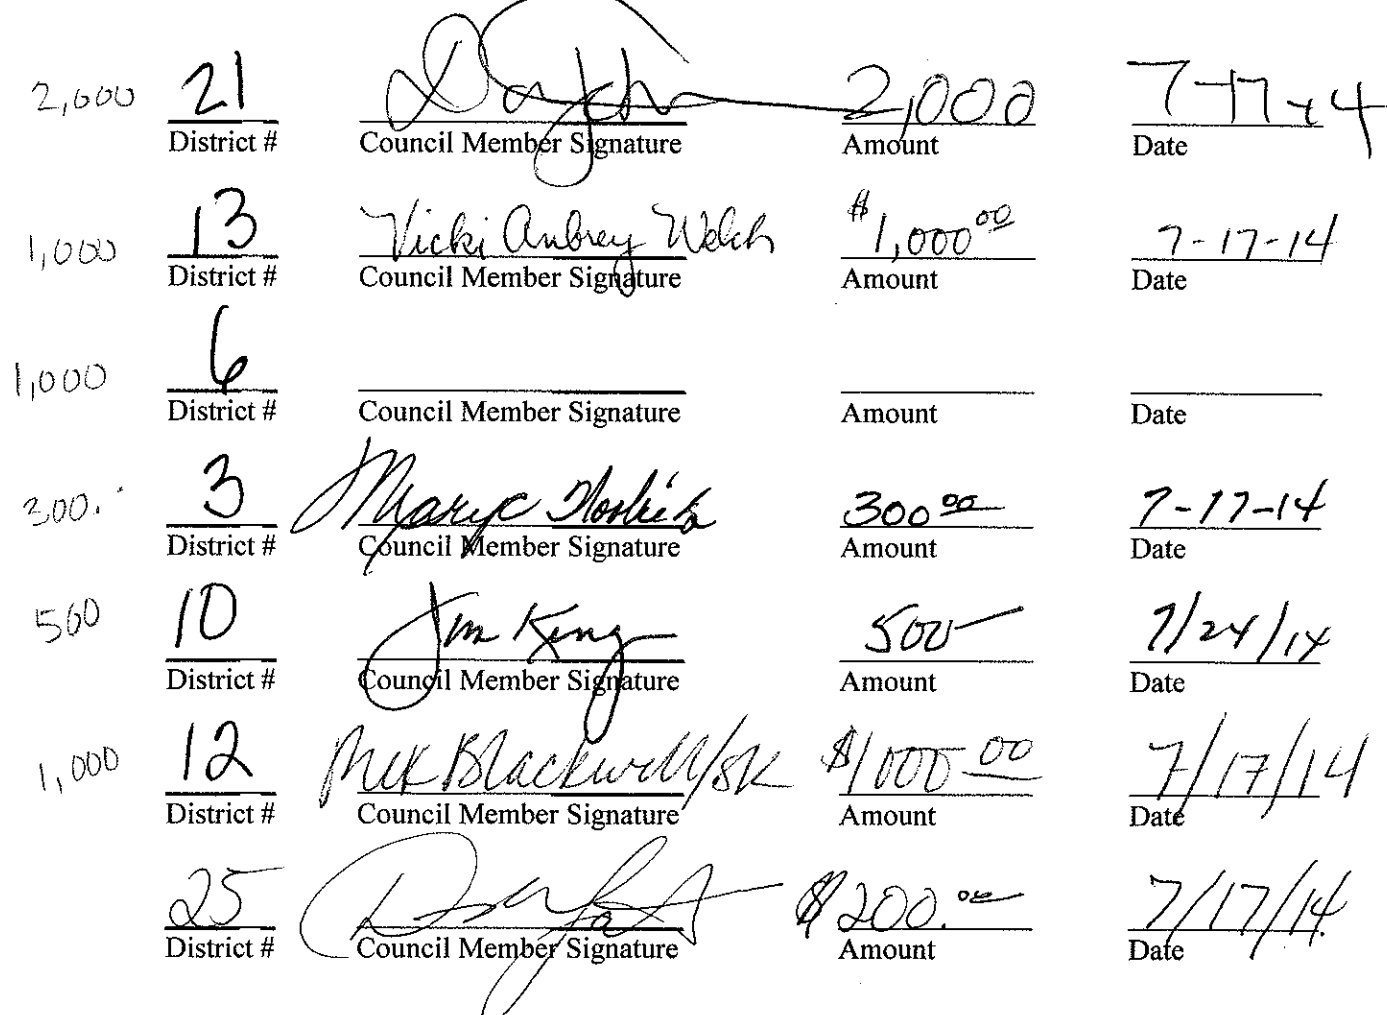 2,000 21 2,000 7-17-14
District # Council Member Signature Amount Date
1,000 13 Vicki Aubrey Welch $1,000 00 7-17-14
District # Council Member Signature Amount Date
1,000 6
District # Council Member Signature Amount Date
300. 3 300 00 7-17-14
District # Council Member Signature Amount Date
500 10 Jim King 500 7/24/14
District # Council Member Signature Amount Date
1,000 12 Blackwell/SK $1000.00 7/17/14
District # Council Member Signature Amount Date
25 $200.00 7/17/14
District # Council Member Signature Amount Date